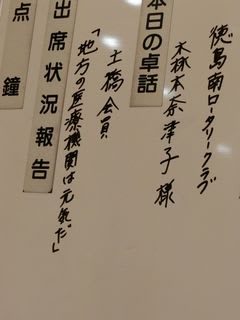 徳島南ロータリークラブ
森本奈津子 様
本日の卓話
土橋会員
「地方の医療機関は元気だ」
出席状況報告
点鐘